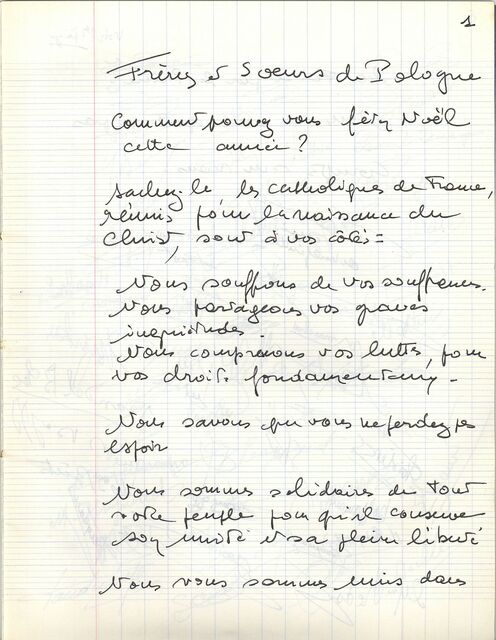 1
Frères et Soeurs de Pologne
Comment pouvez vous fêter Noël
cette année ?
Sachez-le les catholiques de France,
réunis pour la naissance du
Christ, sont à vos côtés =
Nous souffrons de vos souffrances.
Nous partageons vos graves
inquiétudes.
Nous comprenons vos luttes, pour
vos droits fondamentaux -
Nous savons que vous ne perdez pas
espoir
Nous sommes solidaires de tout
votre peuple pour qu'il conserve
son unité et sa pleine liberté
Nous vous sommes unis dans